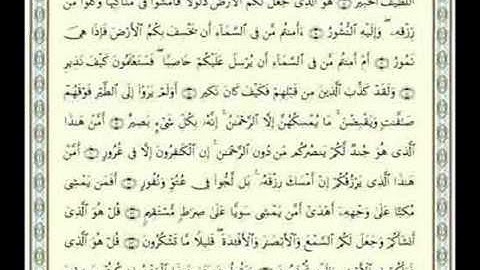 ٱللَّطِيفُ ٱلۡخَبِيرُ ۝ هُوَ ٱلَّذِى جَعَلَ لَكُمُ ٱلۡأَرۡضَ ذَلُولٗا فَٱمۡشُواْ فِى مَنَاكِبِهَا وَكُلُواْ مِن
رِّزۡقِهِۦۖ وَإِلَيۡهِ ٱلنُّشُورُ ۝ ءَأَمِنتُم مَّن فِى ٱلسَّمَآءِ أَن يَخۡسِفَ بِكُمُ ٱلۡأَرۡضَ فَإِذَا هِىَ
تَمُورُ ۝ أَمۡ أَمِنتُم مَّن فِى ٱلسَّمَآءِ أَن يُرۡسِلَ عَلَيۡكُمۡ حَاصِبٗاۖ فَسَتَعۡلَمُونَ كَيۡفَ نَذِيرِ
۝ وَلَقَدۡ كَذَّبَ ٱلَّذِينَ مِن قَبۡلِهِمۡ فَكَيۡفَ كَانَ نَكِيرِ ۝ أَوَلَمۡ يَرَوۡاْ إِلَى ٱلطَّيۡرِ فَوۡقَهُمۡ
صَٰٓفَّٰتٖ وَيَقۡبِضۡنَۚ مَا يُمۡسِكُهُنَّ إِلَّا ٱلرَّحۡمَٰنُۚ إِنَّهُۥ بِكُلِّ شَىۡءِۭ بَصِيرٌ ۝ أَمَّنۡ هَٰذَا
ٱلَّذِى هُوَ جُندٞ لَّكُمۡ يَنصُرُكُم مِّن دُونِ ٱلرَّحۡمَٰنِۚ إِنِ ٱلۡكَٰفِرُونَ إِلَّا فِى غُرُورٍ ۝ أَمَّنۡ
هَٰذَا ٱلَّذِى يَرۡزُقُكُمۡ إِنۡ أَمۡسَكَ رِزۡقَهُۥۚ بَل لَّجُّواْ فِى عُتُوّٖ وَنُفُورٍ ۝ أَفَمَن يَمۡشِى
مُكِبًّا عَلَىٰ وَجۡهِهِۦٓ أَهۡدَىٰٓ أَمَّن يَمۡشِى سَوِيًّا عَلَىٰ صِرَٰطٖ مُّسۡتَقِيمٖ ۝ قُلۡ هُوَ ٱلَّذِىٓ
أَنشَأَكُمۡ وَجَعَلَ لَكُمُ ٱلسَّمۡعَ وَٱلۡأَبۡصَٰرَ وَٱلۡأَفۡـِٔدَةَۖ قَلِيلٗا مَّا تَشۡكُرُونَ ۝ قُلۡ هُوَ ٱلَّذِى